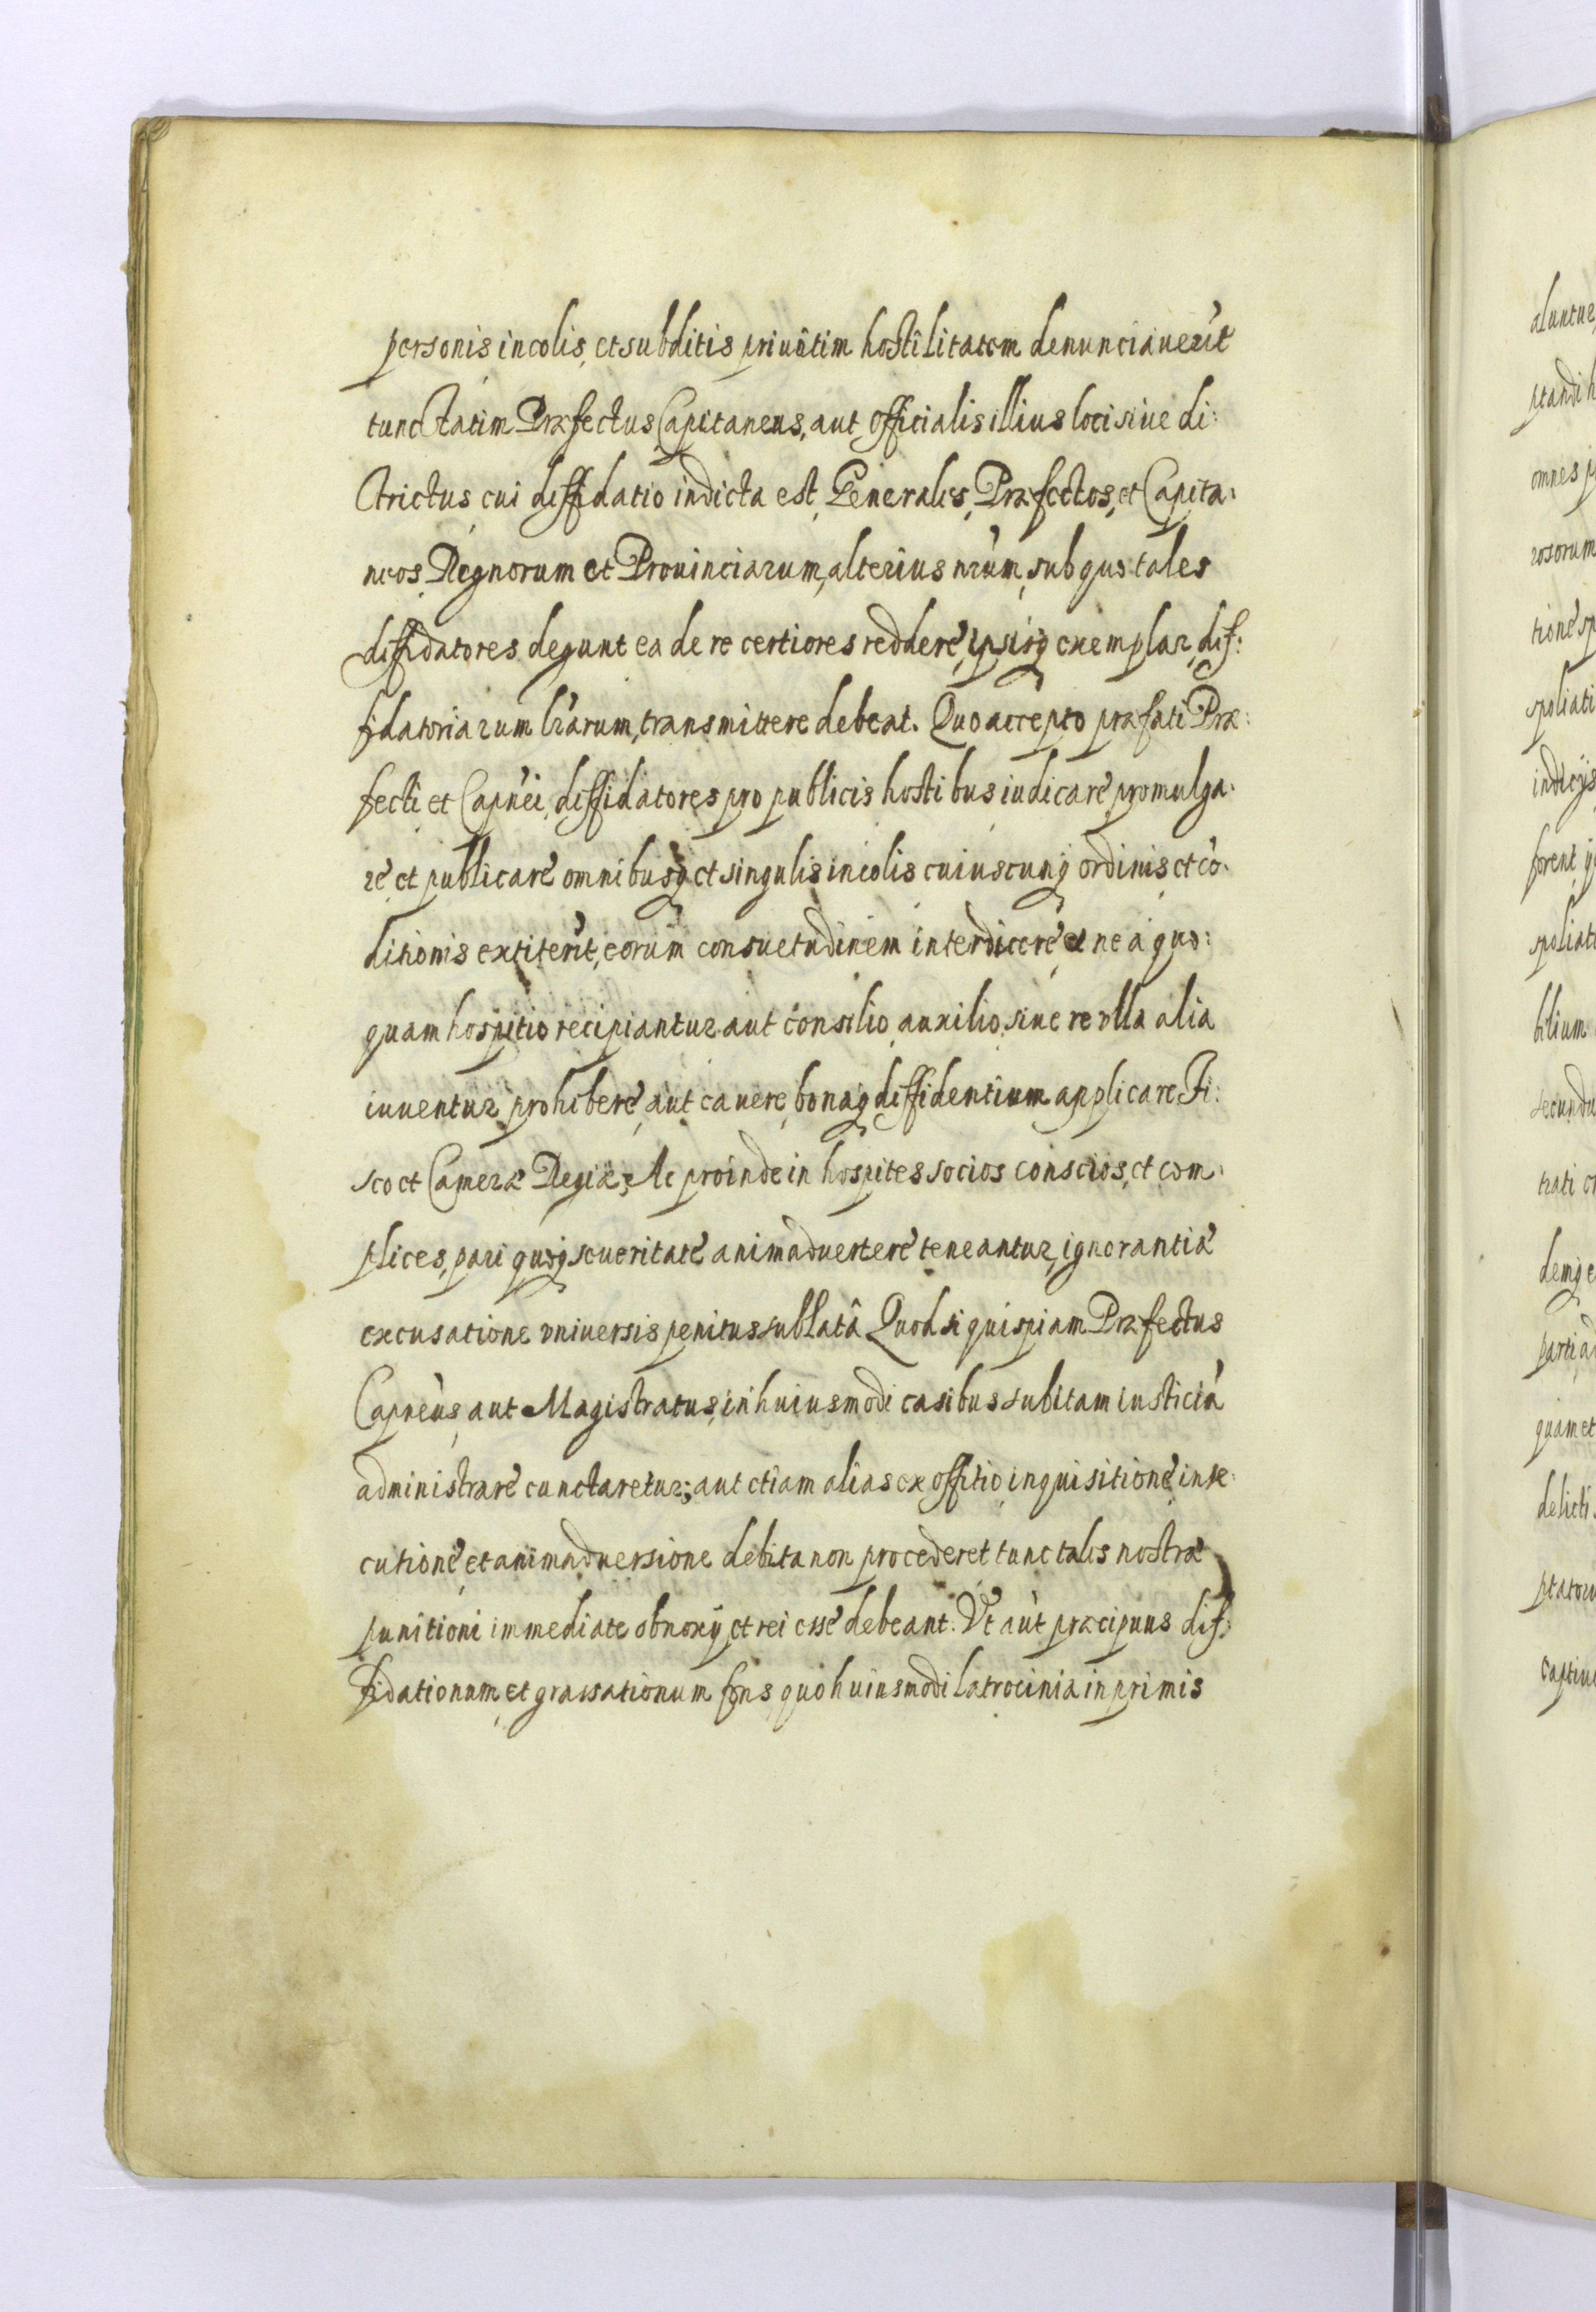 personis incolis, et subditis priuâtim hostilitatem denunciaueru̓t
tunc statim Præfectus Capitaneus, aut officialis illius loci siue di:
strictus cui diffidatio indicta est, Generales, Præfectos, et Capita:
neos, Regnorum et Prouinciarum, alterius nr̃um, sub quo tales
diffidatores degunt ea de re certiores reddere, ipsisq exemplar, dif:
fidatoriarum lr̃arum, transmittere debeat. Quo accepto præfati Præ:
fecti et Capn̓ei, diffidatores pro publicis hostibus iudicare, promulga:
re, et publicare omnibusq et singulis incolis cuiuscunq ordinis, et cõ:
ditionis extiteru̓t, eorum consuetudinem interdicere, et ne a quo:
quam hospitio recipiantur aut consilio, auxilio, siue re vlla alia
iuuentur prohibere, aut cauere, bonaq diffidentium applicare Fi:
sco et Cameræ Regiæ, Ac proinde in hospites socios conscios, et com:
plices, pari quoq seueritate animaduertere teneantur, ignorantiæ
excusatione vniuersis penitus sublatâ Quod si quispiam Præfectus
Capn̓eus, aut Magistratus, in huiusmodi casibus subitam iusticiã
administrare cunctaretur; aut etiam alias ex offitio, inquisitione, inse:
cutione, et animaduersione debita non procederet tunc tales nostræ
punitioni immediate obnoxÿ, et rei esse debeant. Vt aũt præcipuus dif:
fidationum, et grassationum fons, quo huiusmodi latrocinia inprimis
aluntur
ptandi h
omnes p
rosorum
tione sp
spoliati
indicijs
forent
spoliat
bilium
secundu
trati
demq
parti
quam et
delicti
captiu